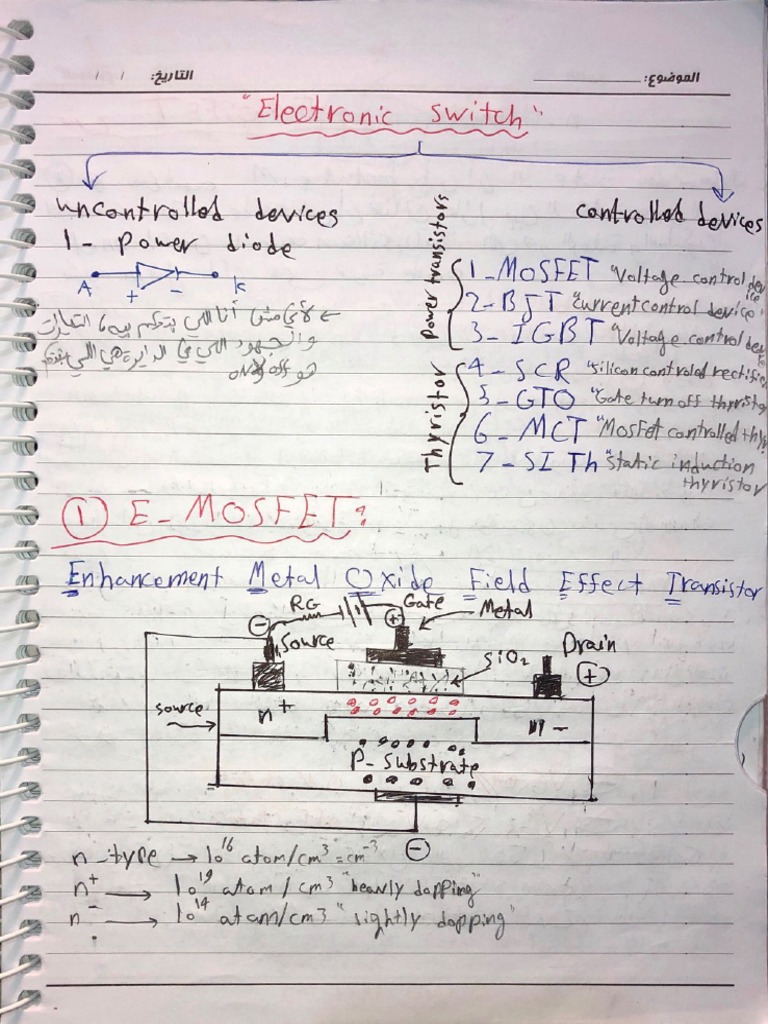 الموضوع:
التاريخ: / /
"Electronic switch"
uncontrolled devices
1- Power diode
A + - K
← لأني مش أنا اللي بتحكم فيه، التيارات
والجهود اللي في الدايرة هي اللي
هو on ولا off
controlled devices
Power transistors
1-MOSFET "Voltage control device"
2-BJT "current control device"
3-IGBT "Voltage control device"
Thyristor
4-SCR "silicon controled rectifie
5-GTO "Gate turn off thyristo
6-MCT "Mosfet controlled thyr
7-SI Th "static induction
thyristor
① E-MOSFET:
Enhancement Metal Oxide Field Effect Transistor
RG
Gate
Metal
Source
SiO2
Drain
source
n+
n-
P-substrate
n-type → 10^16 atom/cm^3 = cm^-3
n+ → 10^19 atom/cm^3 "heavly dopping"
n- → 10^14 atam/cm3 "lightly dopping"